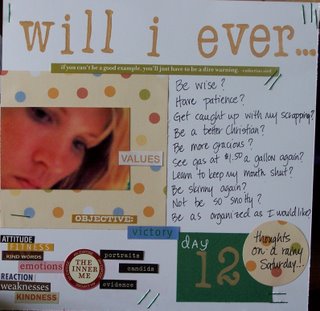 will i ever...
if you can't be a good example, you'll just have to be a dire warning.
Be wise?
Have patience?
Get caught up with my scrapping?
Be a better Christian?
Be more gracious?
See gas at $1.50 a gallon again?
Learn to keep my mouth shut?
Be skinny again?
Not be so snotty?
Be as organized as I would like?
VALUES
OBJECTIVE:
victory
ATTITUDE
FITNESS
KIND WORDS
emotions
REACTION
weaknesses
KINDNESS
THE INNER ME
portraits
candids
evidence
day
12
thoughts
on a rainy
Saturday...